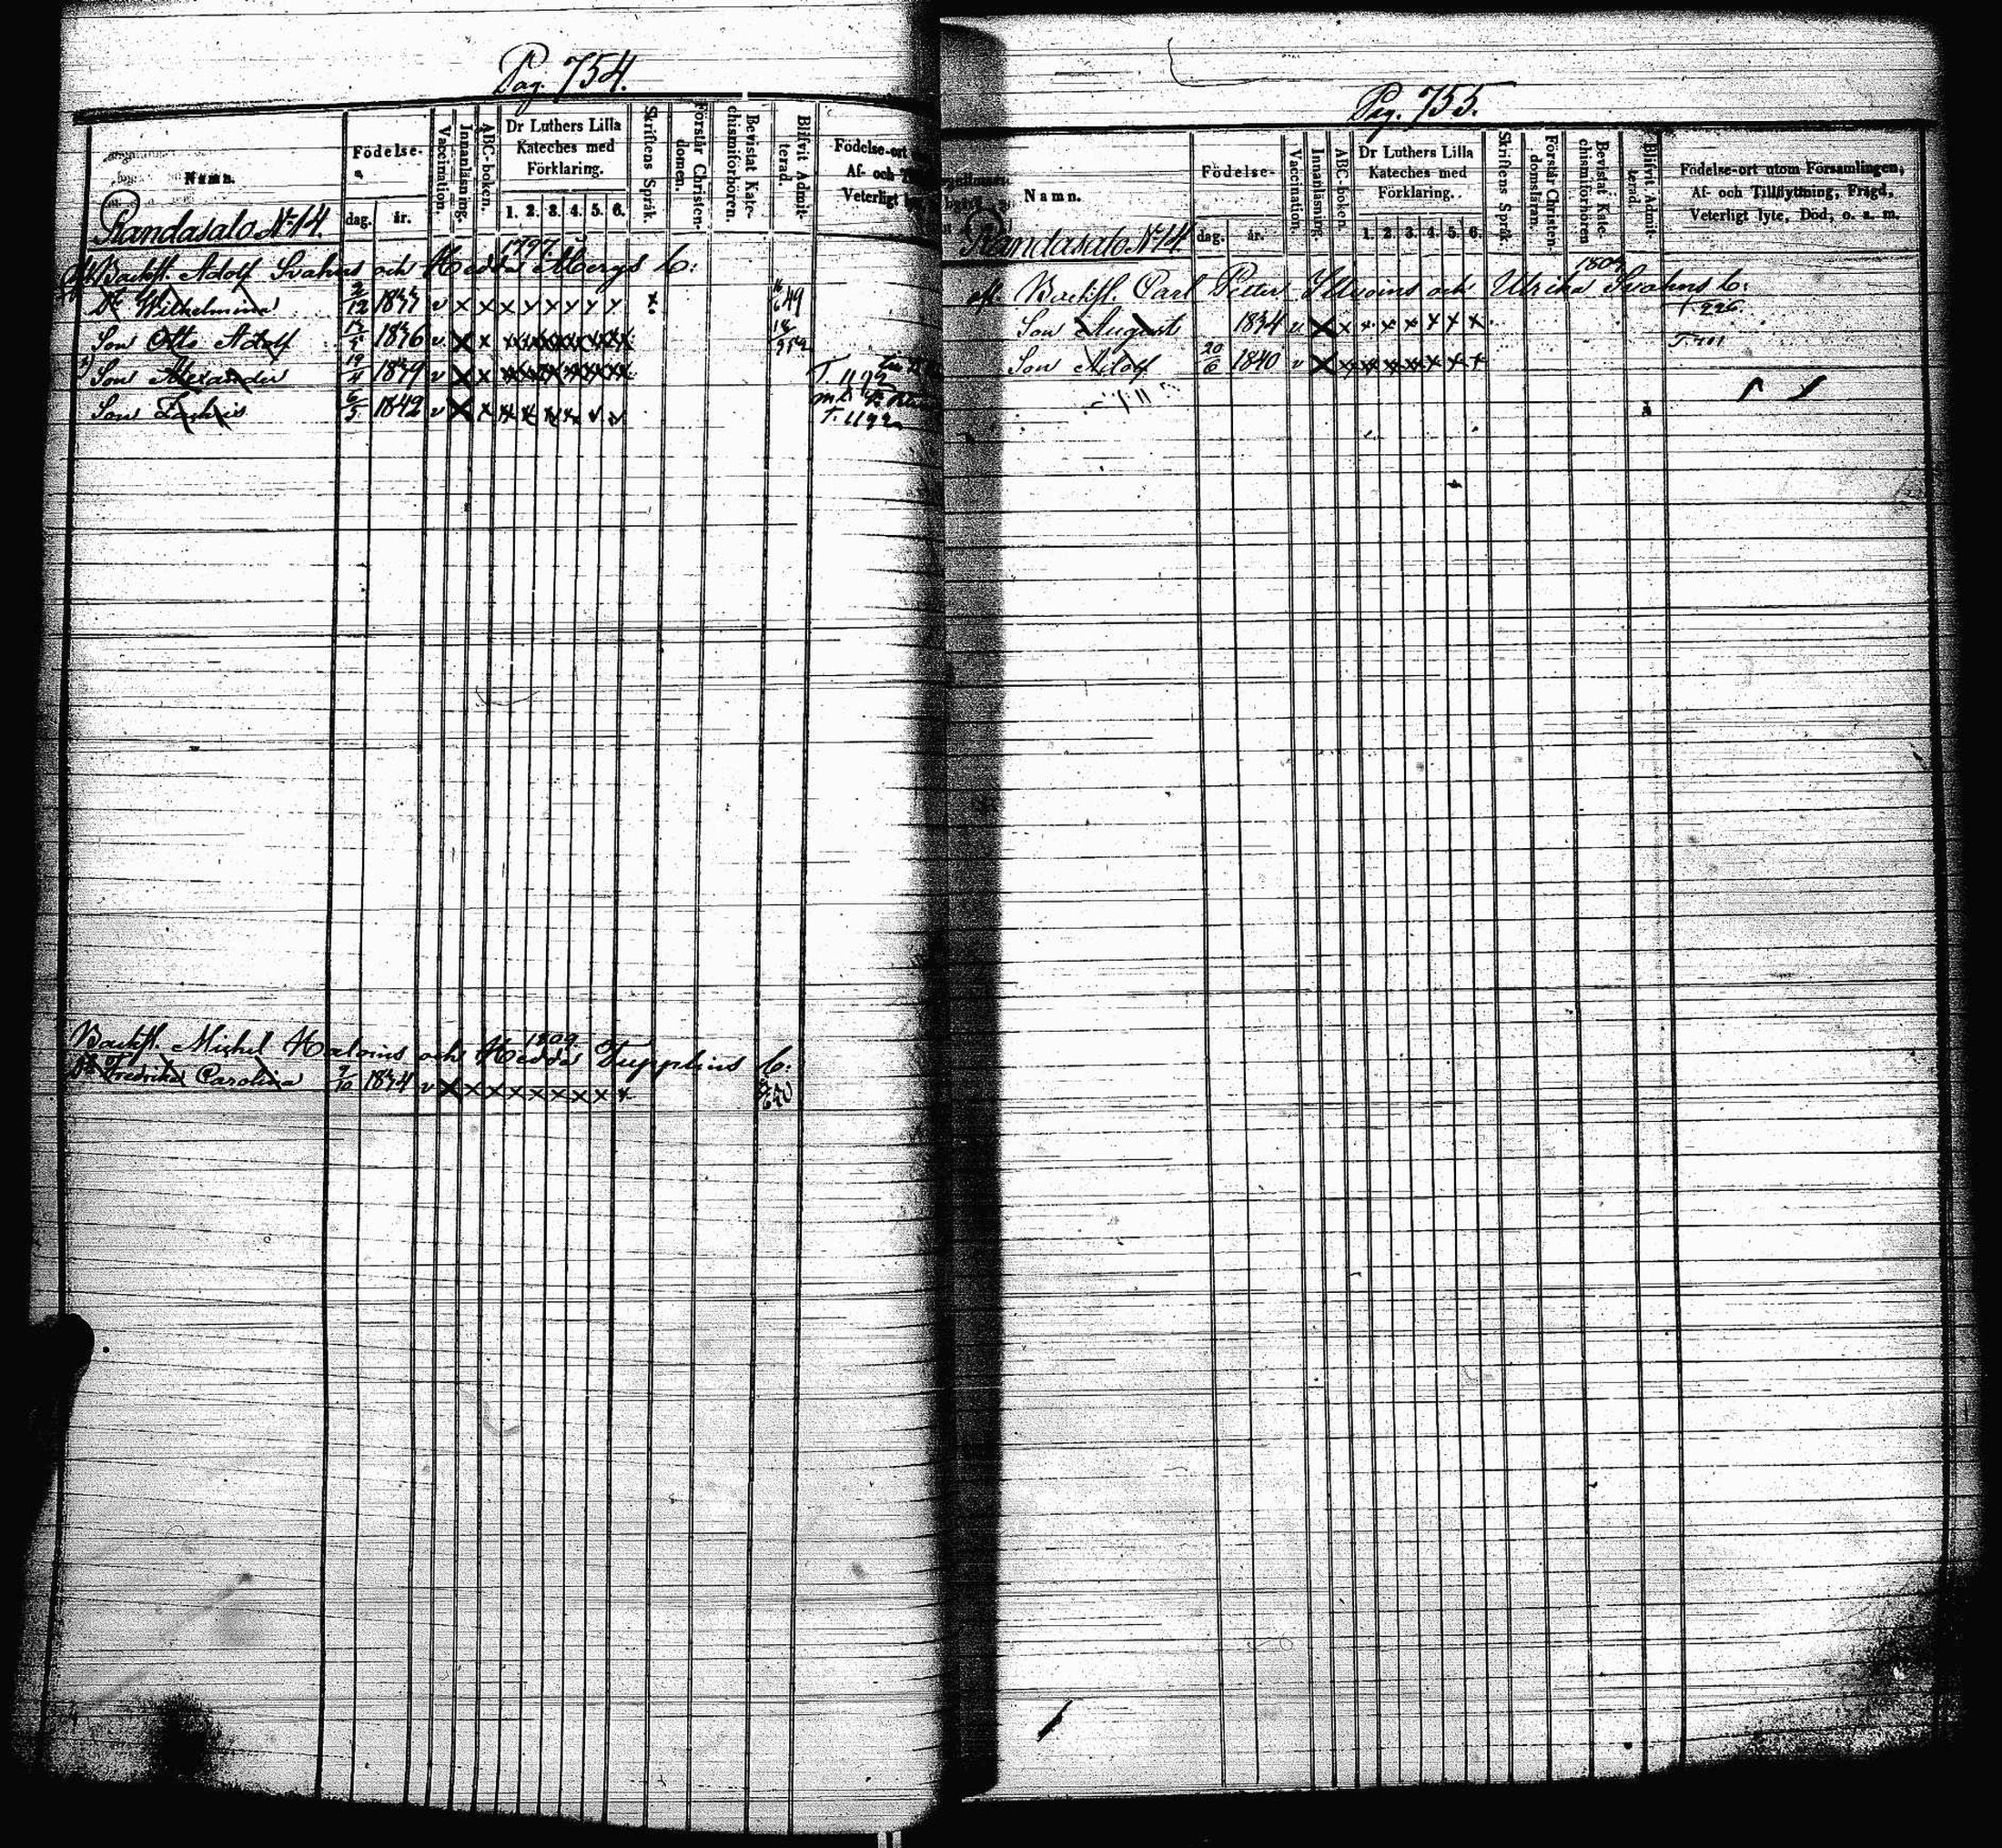 Pag. 754.
Namn.
Födelse-
dag. år.
Vaccination.
Innanläsning.
ABC-boken.
Dr Luthers Lilla
Kateches med
Förklaring.
1. 2. 3. 4. 5. 6.
Skriftens Språk.
Förstår Christen-
domen.
Bevistat Kate-
chismiförhören.
Blifvit Admit-
terad.
Födelse-ort
Af- och
Veterligt
Randasalo No 14.
1797
Backst. Adolf Svahns och Hedda Åbergs b:
Dr Wilhelmina 2/12 1833 v x x x x x x x x x 49
Son Otto Adolf 1836 v x x x x x x x x
Son Alexander 19 1839 v x x x x x x x x T. 1192
Son 6/5 1842 v x x x x x x v v
T. 1192
1809.
Backst. Michel och Hedda b:
Dr Fredrika Carolina 7/10 1834 v x x x x x x x x x
Pag. 755.
Namn.
Födelse-
dag. år.
Vaccination.
Innanläsning.
ABC-boken.
Dr Luthers Lilla
Kateches med
Förklaring.
1. 2. 3. 4. 5. 6.
Skriftens Språk.
Förstår Christen-
domsläran.
Bevistat Kate-
chismiförhören
Blifvit Admit-
terad.
Födelse-ort utom Församlingen,
Af- och Tillflyttning, Frägd,
Veterligt lyte, Död, o. s. m.
Randasalo No 14.
1804
Backst. Carl Petter och Ulrika Svahns b:
Son August 1834 v x x x x x x x x T 226.
Son Adolf 20/6 1840 v x x x x x x x x